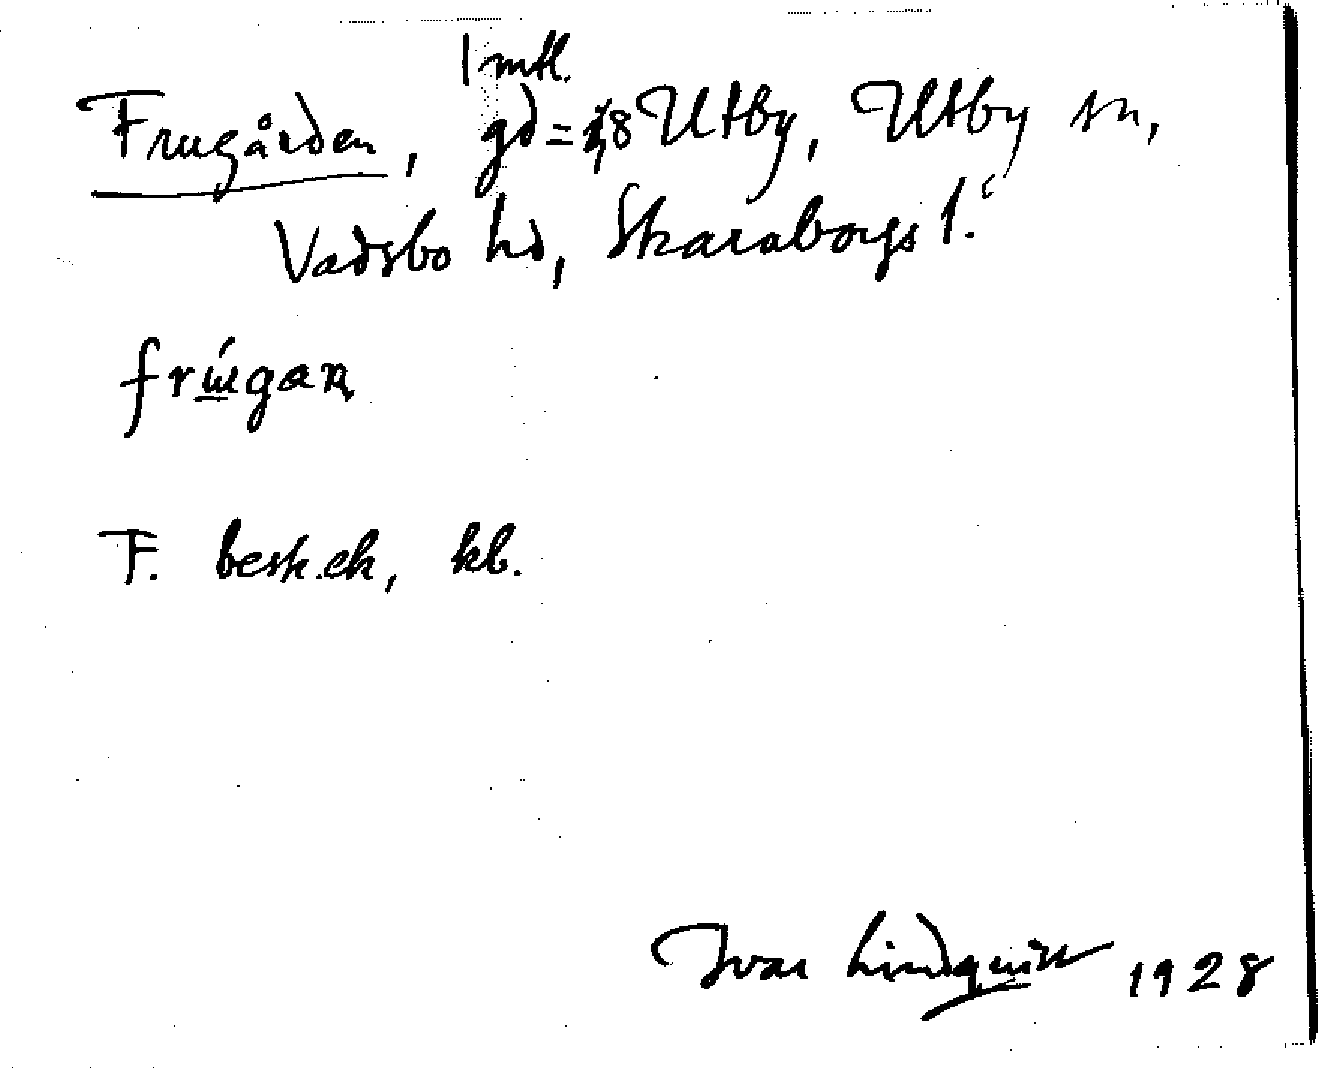 1 mtl.
Frugården, gd = 1,8 Utby, Utby sn,
Vadsbo hd, Skaraborgs l.
frúgaɳ
F. besk. ek, kb.
Ivar Lindquist 1928